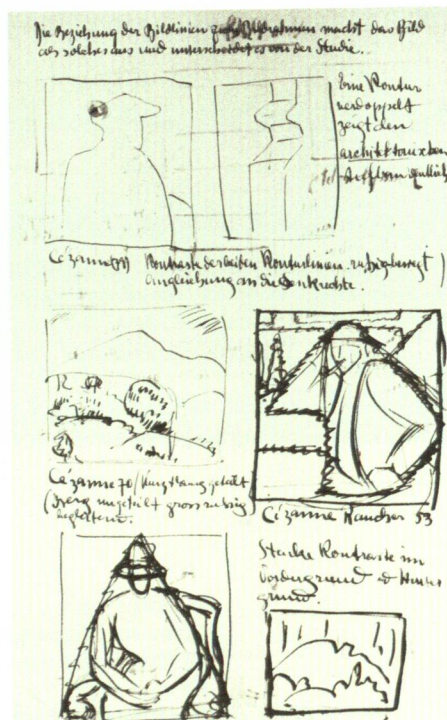 Die Beziehung der Bildlinien zum Bildrahmen macht das Bild
als solches aus und unterscheidet es von der Studie..
Eine Kontur
verdoppelt
zeigt den
architektonischen
deutlich
Cézanne Kontraste der beiden Konturlinien. ruhig bewegt)
Angleichung an die Senkrechte.
Cézanne 70/
(Berg ungeteilt gross ruhig
begleitend.
Cézanne Raucher 53
Starke Kontraste im
Vordergrund Hinter
grund.